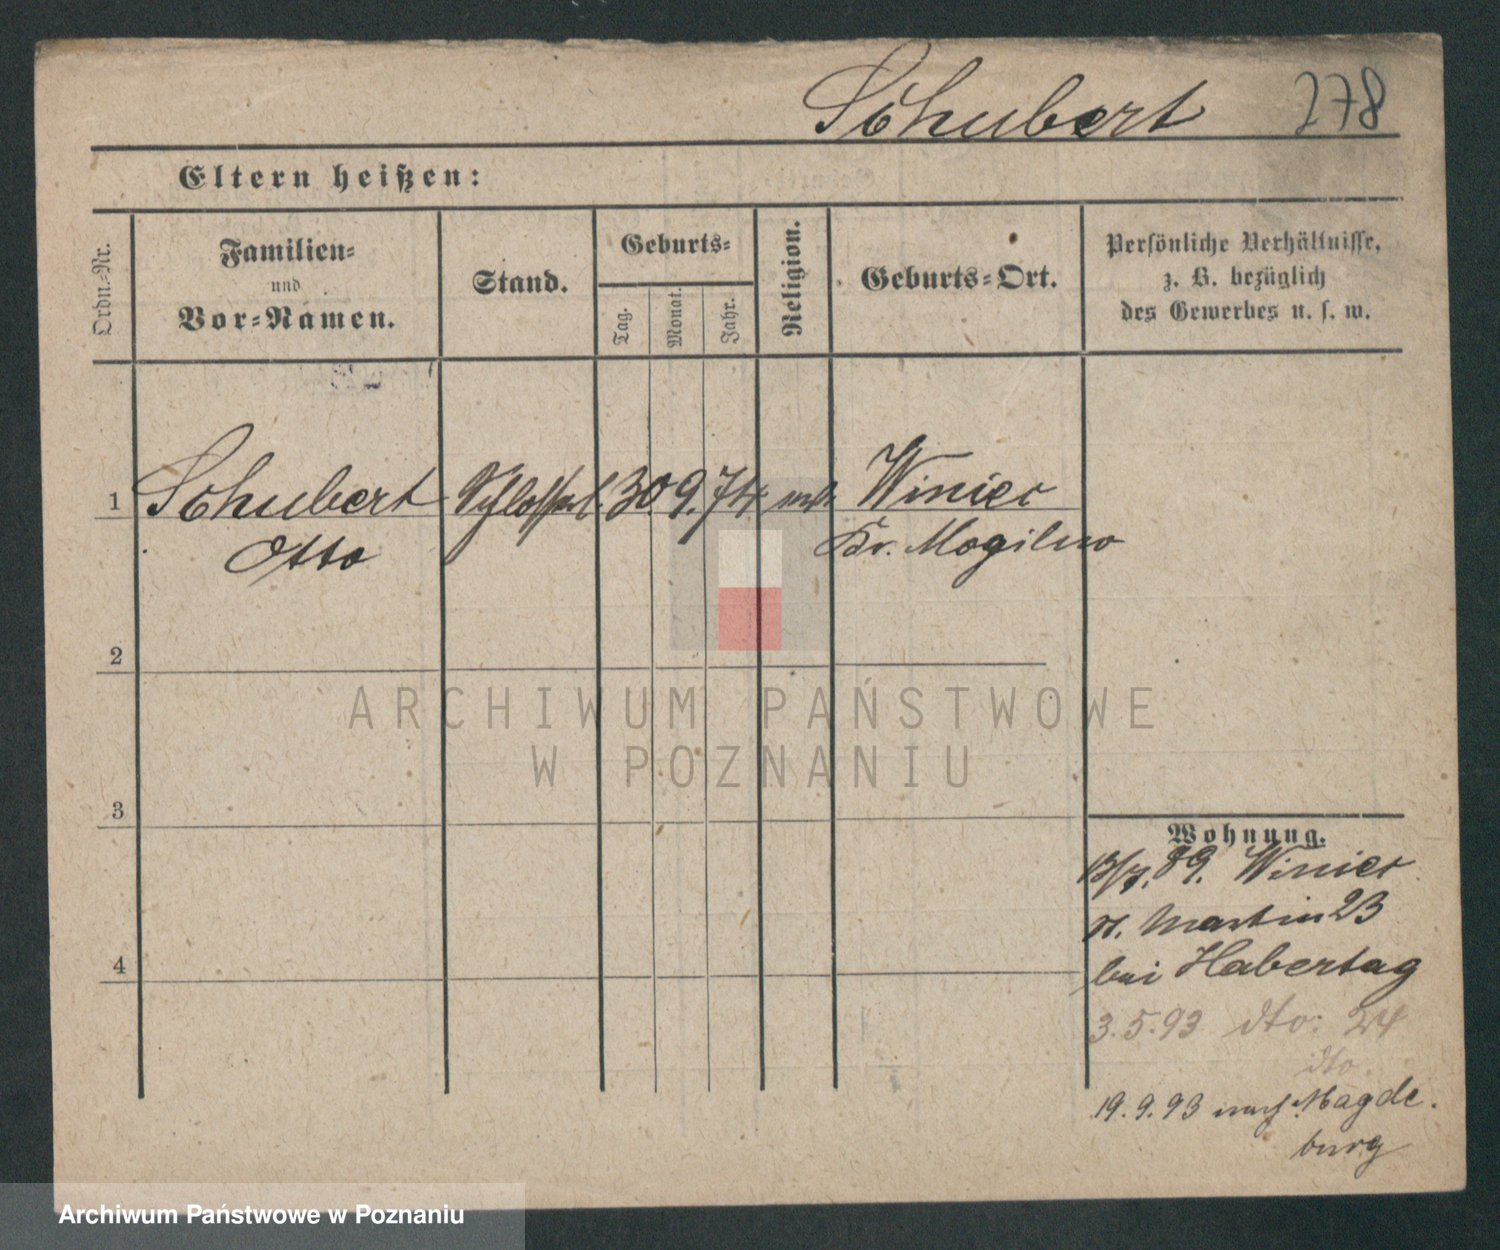 Schubert 278
Eltern heißen:
Ordn.-Nr.
Familien-
und
Vor-Namen.
Stand.
Geburts-
Tag.
Monat.
Jahr.
Religion.
Geburts-Ort.
Persönliche Verhältnisse,
z. B. bezüglich
des Gewerbes u. s. w.
1 Schubert Schlosserl. 30. 9. 74. Winiec
Otto Kr. Mogilno
2
ARCHIWUM PAŃSTWOWE
W POZNANIU
3
Wohnung.
13/7. 89. Winiec
St. Martin 23
4
bei Habertag
3.5.93 dto: 24
dto
19.9.93 nach Magde-
burg
Archiwum Państwowe w Poznaniu